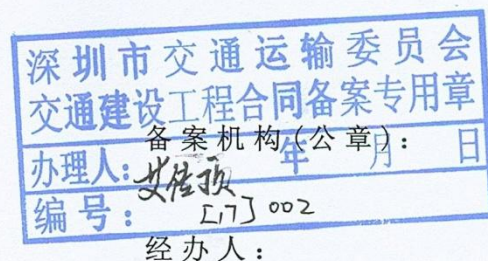 深圳市交通运输委员会
交通建设工程合同备案专用章
备案机构(公章):
办理人: 年 月 日
编号: [17]002
经办人: